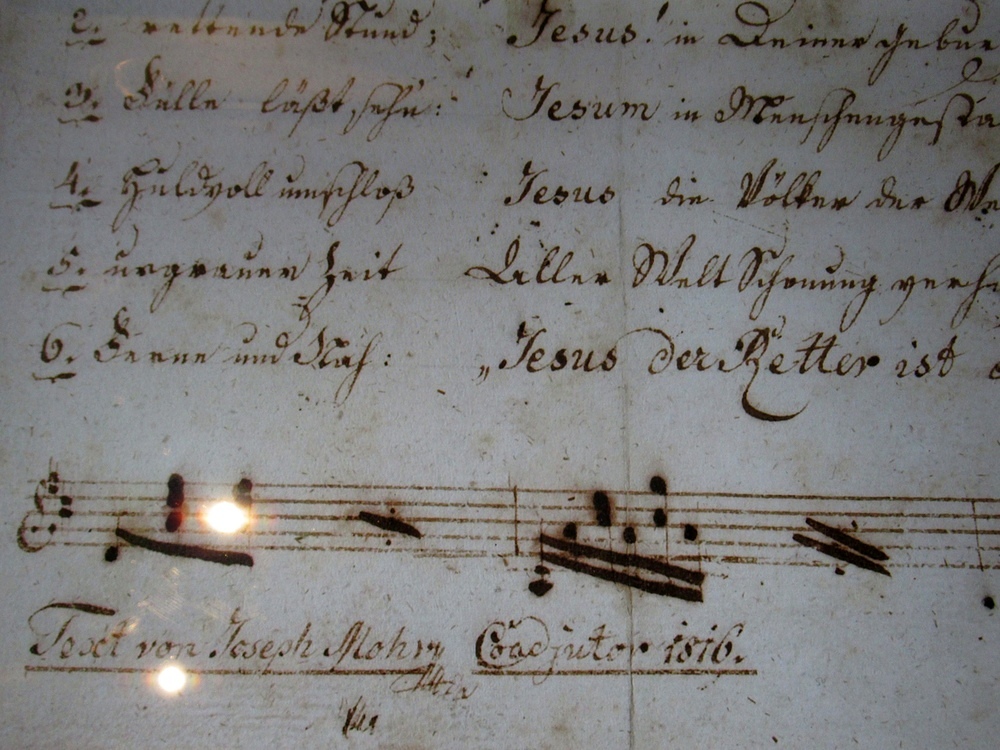 2. rettende Stund; Jesus! in Deiner Gebur
3. Fülle läßt sehn: Jesum in Menschengesta
4. Huldvoll umschloß Jesus die Völker der We
5. urgrauer Zeit Aller Welt Schonung verh
6. Ferne und Nah: „Jesus der Retter ist
Text von Joseph Mohr Coadjutor 1816.